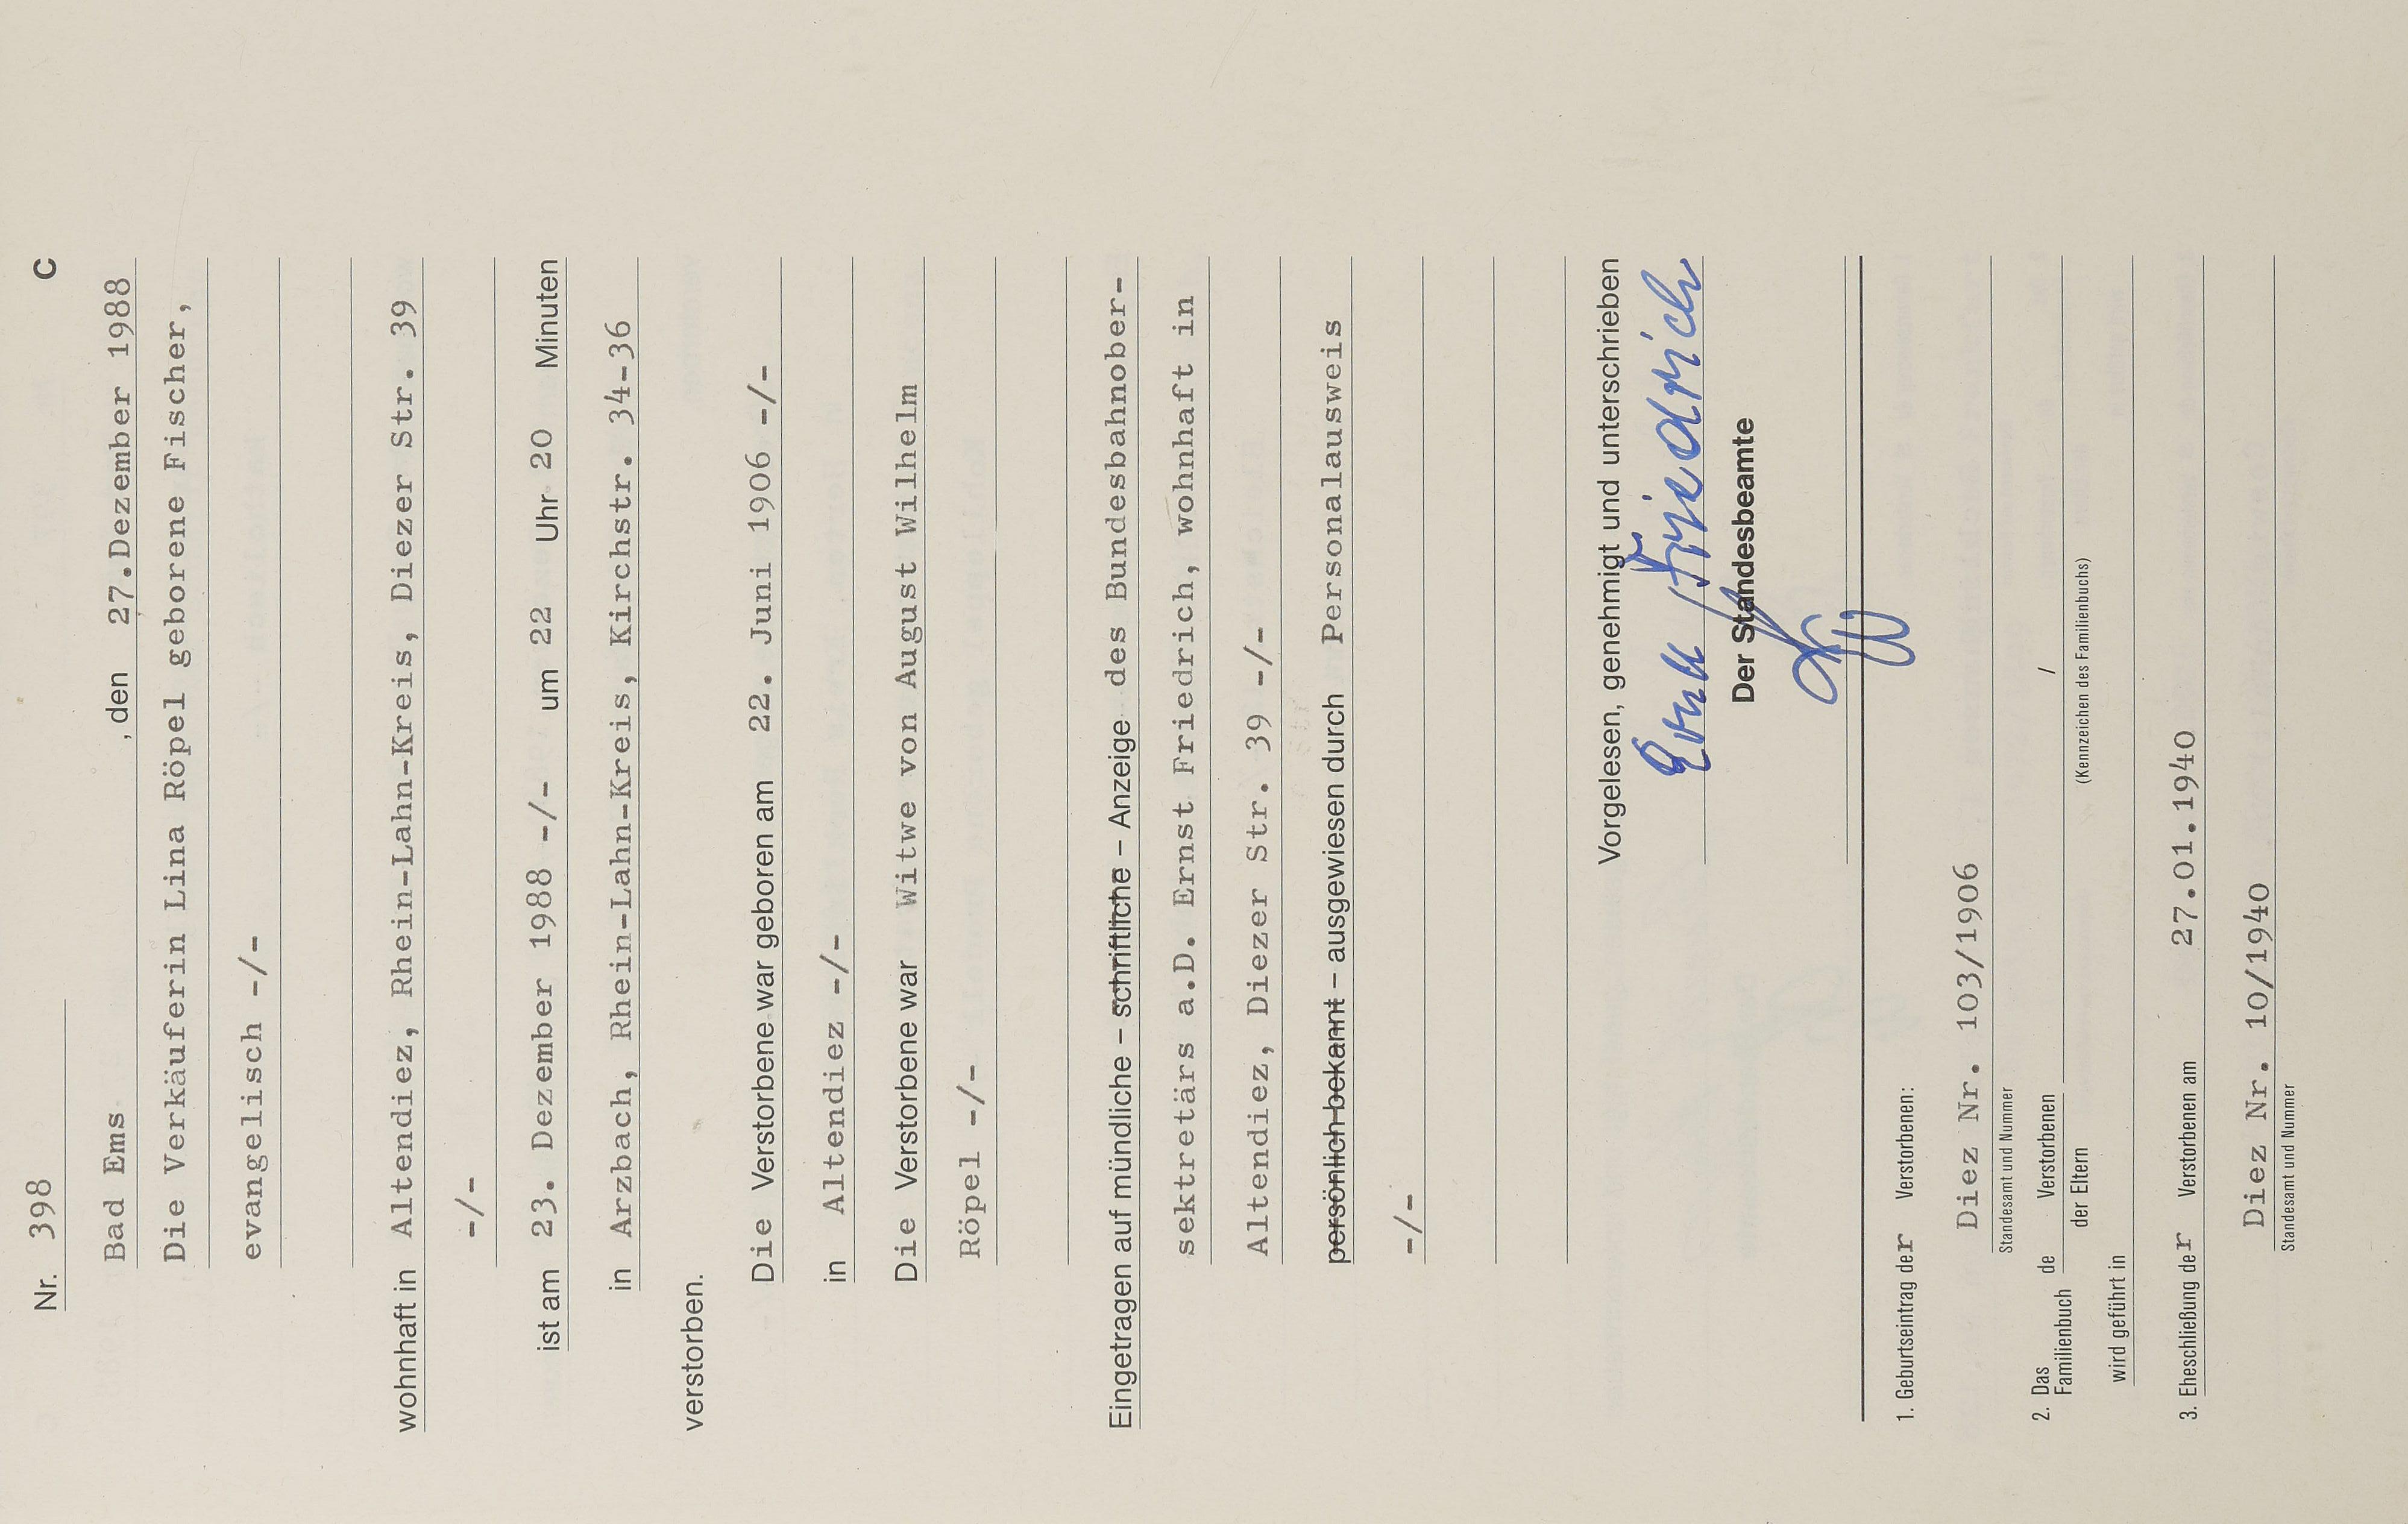 Nr. 398 C
Bad Ems , den 27.Dezember 1988
Die Verkäuferin Lina Röpel geborene Fischer,
evangelisch -/-
wohnhaft in Altendiez, Rhein-Lahn-Kreis, Diezer Str. 39
-/-
ist am 23. Dezember 1988 -/- um 22 Uhr 20 Minuten
in Arzbach, Rhein-Lahn-Kreis, Kirchstr. 34-36
verstorben.
Die Verstorbene war geboren am 22. Juni 1906 -/-
in Altendiez -/-
Die Verstorbene war Witwe von August Wilhelm
Röpel -/-
Eingetragen auf mündliche – schriftliche – Anzeige des Bundesbahnober-
sektretärs a.D. Ernst Friedrich, wohnhaft in
Altendiez, Diezer Str. 39 -/-
persönlich bekannt – ausgewiesen durch Personalausweis
-/-
Vorgelesen, genehmigt und unterschrieben
Ernst Friedrich
Der Standesbeamte
1. Geburtseintrag der Verstorbenen:
Diez Nr. 103/1906
Standesamt und Nummer
2. Das Familienbuch de Verstorbenen /
der Eltern (Kennzeichen des Familienbuchs)
wird geführt in
3. Eheschließung der Verstorbenen am 27.01.1940
Diez Nr. 10/1940
Standesamt und Nummer